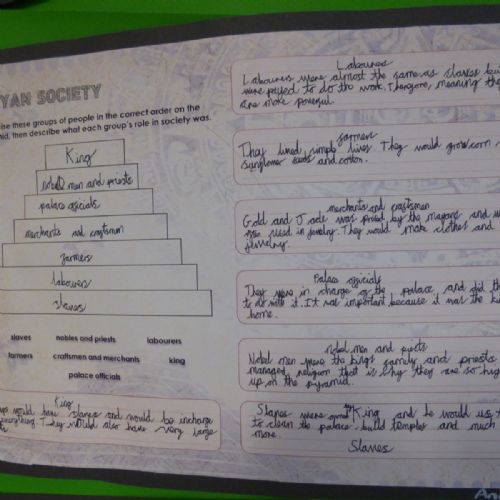 YAN SOCIETY
these groups of people in the correct order on the
then describe what each group's role in society was.
King
nobel men and priests
palace officials
merchants and craftsmen
farmers
labourers
slaves
slaves nobles and priests labourers
farmers craftsmen and merchants king
palace officials
King
would have slaves and would be incharge
everything. They would also have very large
Labourers
Labourers were almost the same as slaves but
were payed to do the work. Therefore, meaning they
are more powerful.
farmers
They lived simple lives. They would grow corn
sunflower seeds and cotton.
merchants and craftsmen
Gold and Jade was prised by the mayans and
used in jewelry. They would make clothes and
jewelry.
Palace officials
They were in charge of the palace, and did the
to do with it. It was important because it was the
home.
nobel men and priests
Nobel men were the kings family and priests
managed religion that is why they are so high
up on the pyramid.
Slaves were by King and he would use
to clean the palace, build temples and much
more.
Slaves